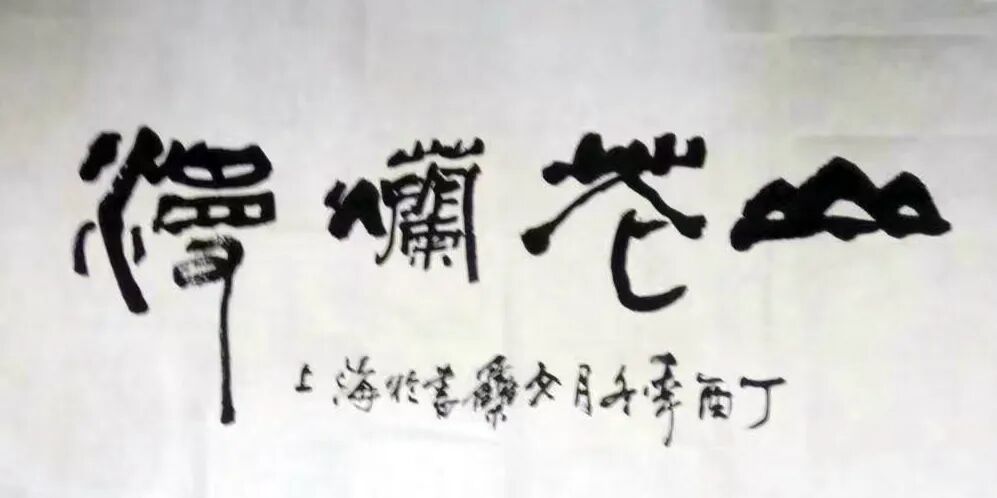 山花爛漫
丁酉年冬月文書於海上